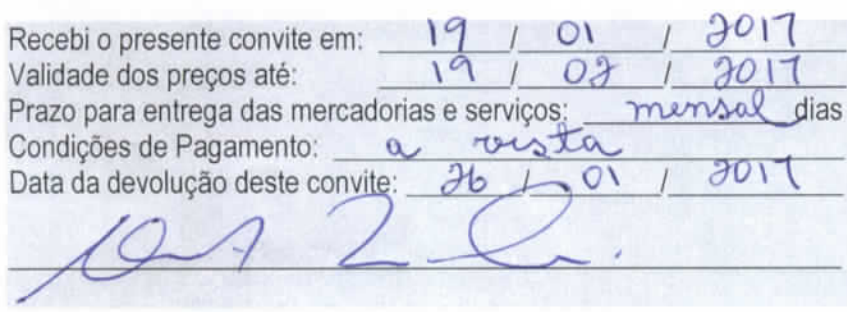 Recebi o presente convite em: 19 / 01 / 2017
Validade dos preços até: 19 / 02 / 2017
Prazo para entrega das mercadorias e serviços: mensal dias
Condições de Pagamento: a vista
Data da devolução deste convite: 26 / 01 / 2017